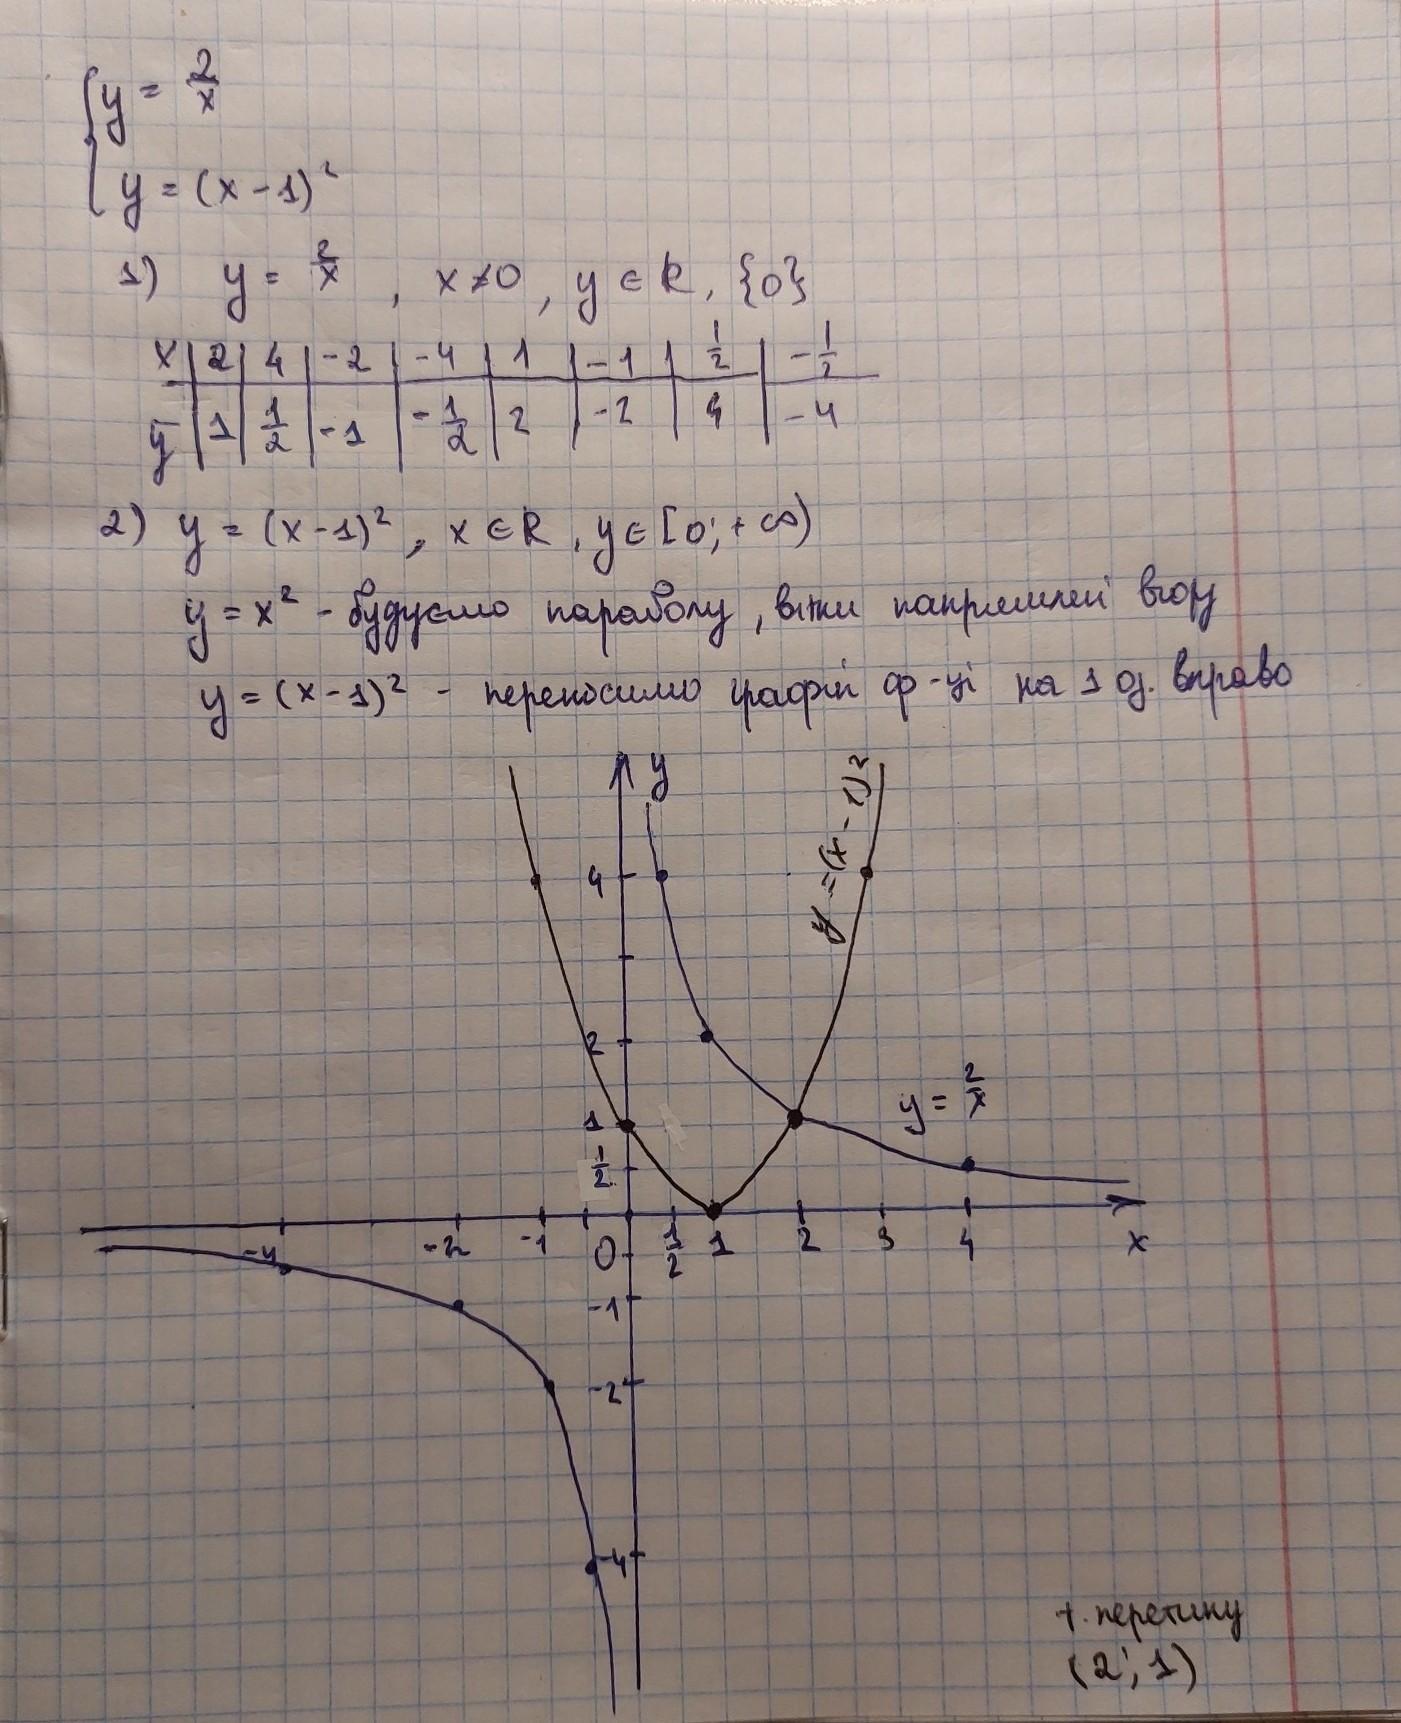 { y = 2/x
y = (x - 1)²
1) y = 2/x , x ≠ 0 , y ∈ R , {0}
x | 2 | 4 | -2 | -4 | 1 | -1 | 1/2 | -1/2
y | 1 | 1/2 | -1 | -1/2 | 2 | -2 | 4 | -4
2) y = (x - 1)² , x ∈ R , y ∈ [0; +∞)
y = x² - будуємо параболу, вітки напрямлені вгору
y = (x - 1)² - переносимо графік ф-ці на 1 од. вправо
y
y = (x - 1)²
4
2
y = 2/x
1
1/2
-4 -2 -1 0 1/2 1 2 3 4 x
-1
-2
-4
т. перетину
(2; 1)